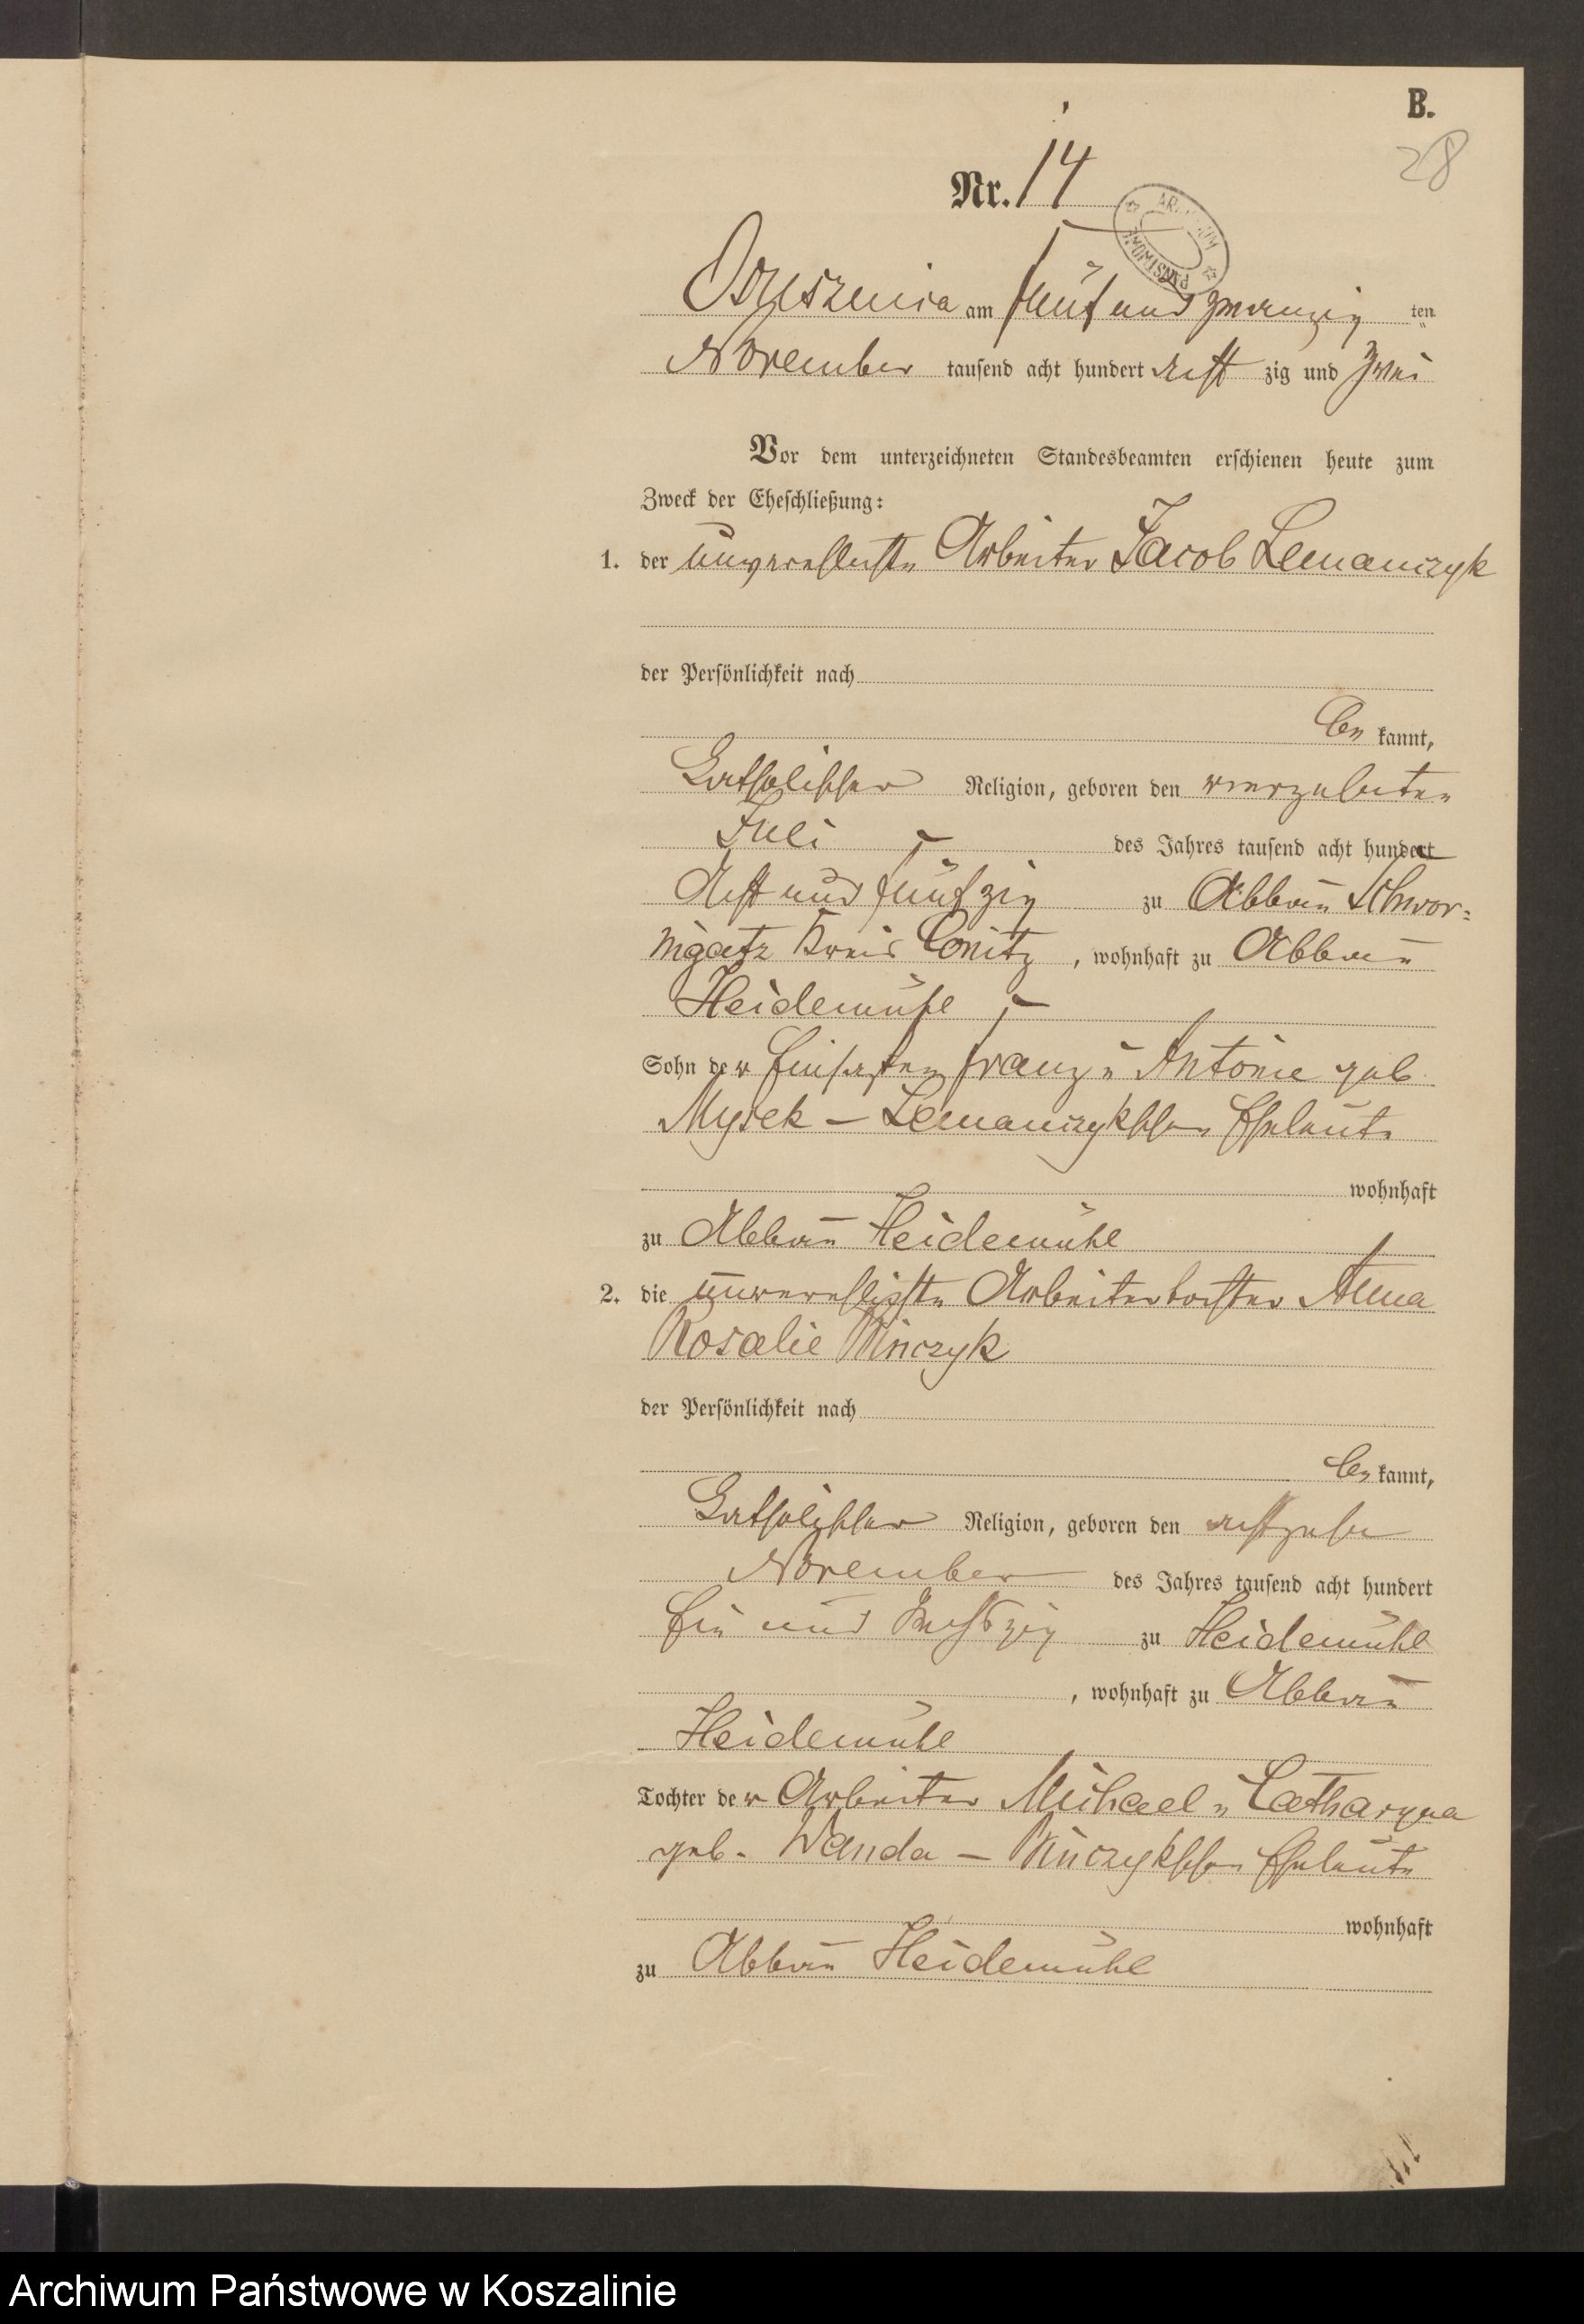 B.
28
Nr. 14
ARCHIWUM PAŃSTWOWE
Osusznica am fünf und zwanzig ten
November tausend acht hundert acht zig und zwei
Vor dem unterzeichneten Standesbeamten erschienen heute zum
Zweck der Eheschließung:
1. der unverehelichte Arbeiter Jacob Lemanczyk
der Persönlichkeit nach
be kannt,
Katholischer Religion, geboren den vierzehnten
Juli des Jahres tausend acht hundert
Acht und fünfzig zu Abbau Schwor-
nigatz Kreis Conitz, wohnhaft zu Abbau
Heidemühl
Sohn der Einsassen Franz u Antonie geb
Mysek - Lemanczykschen Eheleute
wohnhaft
zu Abbau Heidemühl
2. die unverehelichte Arbeitertochter Anna
Rosalie
der Persönlichkeit nach
be kannt,
Katholischer Religion, geboren den achtzehn
November des Jahres tausend acht hundert
Ein und Sechszig zu Heidemühl
, wohnhaft zu Abbau
Heidemühl
Tochter der Arbeiter Michael u Catharyna
geb. Wanda - Eheleute
wohnhaft
zu Abbau Heidemühl
Archiwum Państwowe w Koszalinie